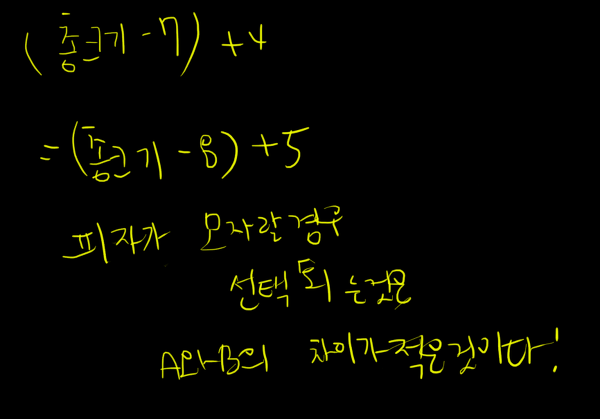 (총크기 - 7) + 4
= (총크기 - 8) + 5
피자가 모자랄경우
선택 되는것은
A와B의 차이가 적은것이다!